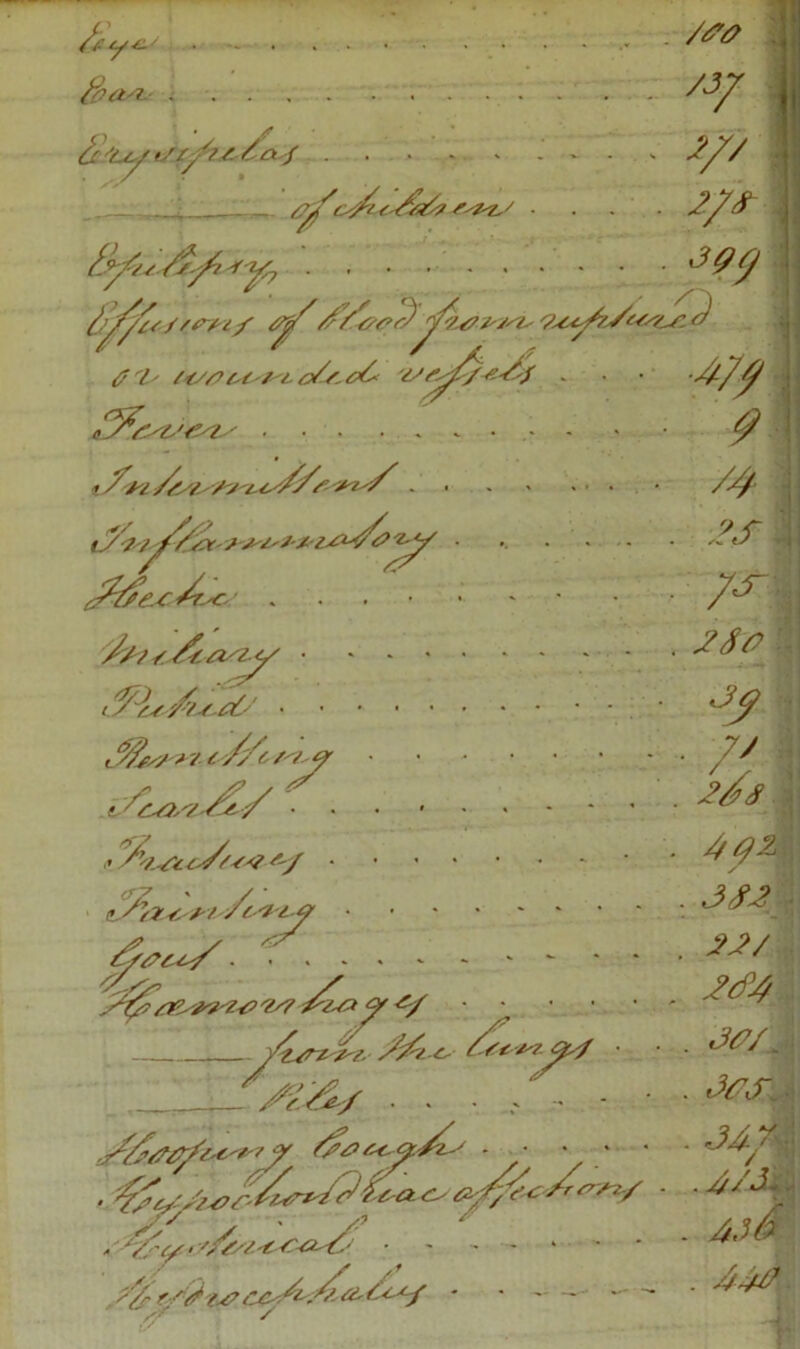 Eye . . . . . . . . . . . . 100
Ear . . . . . . . . . . . . 137
Erysipelas . . . . . . . . . 271
———— of children . . . . . 278
Epilepsy . . . . . . . . . . 399
Effusions of blood from ruptured
or wounded vessels . . . 479
Fever . . . . . . . . . . . 9
Intermittent . . . . . . . . 14
Inflammatory . . . . . . . 25
Hectic . . . . . . . . . . 75
Miliary . . . . . . . . . . 280
Putrid . . . . . . . . . . 39
Remitting . . . . . . . . 71
Scarlet . . . . . . . . . . 268
Fractures . . . . . . . . . 492
Fainting . . . . . . . . . 382
Gout . . . . . . . . . . . 221
Hæmorrhages . . . . . . 284
———— from the lungs . . . 301
———— Piles . . . . . . . 305
Hooping Cough . . . . . . 347
Hypochondriac affections . . 413
Hysterical . . . . . . . . 436
Hydrocephalus . . . . . . 440